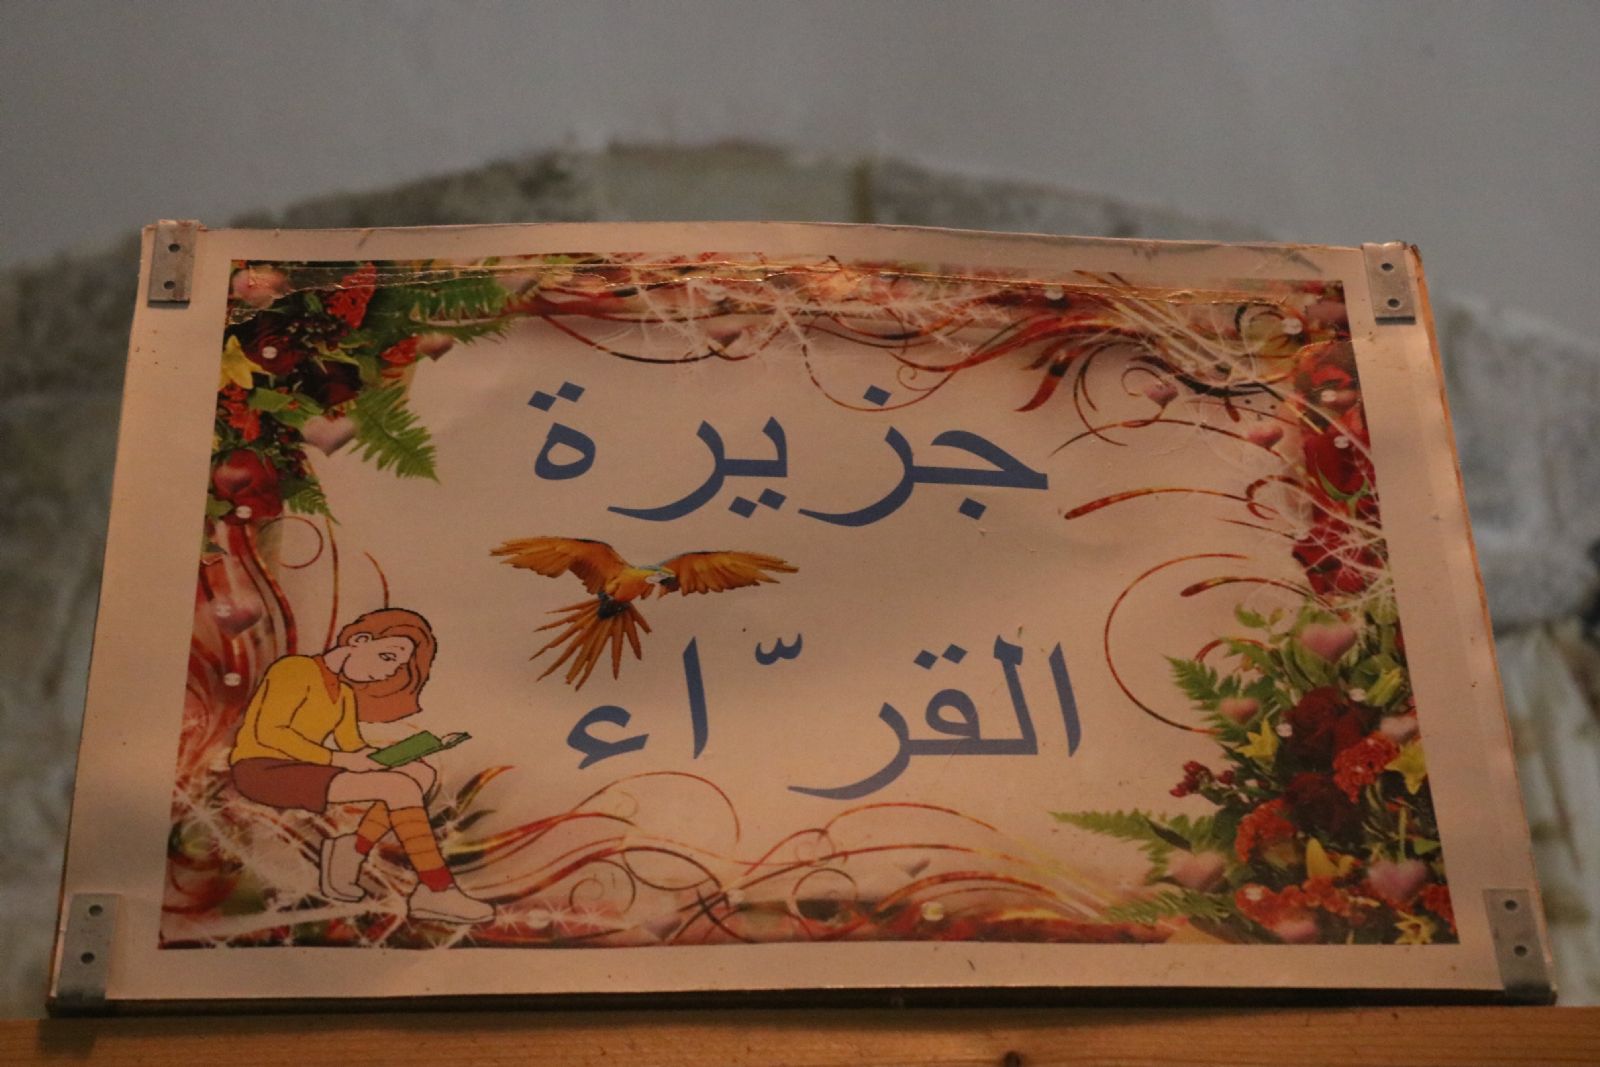 جزيرة
القرّاء